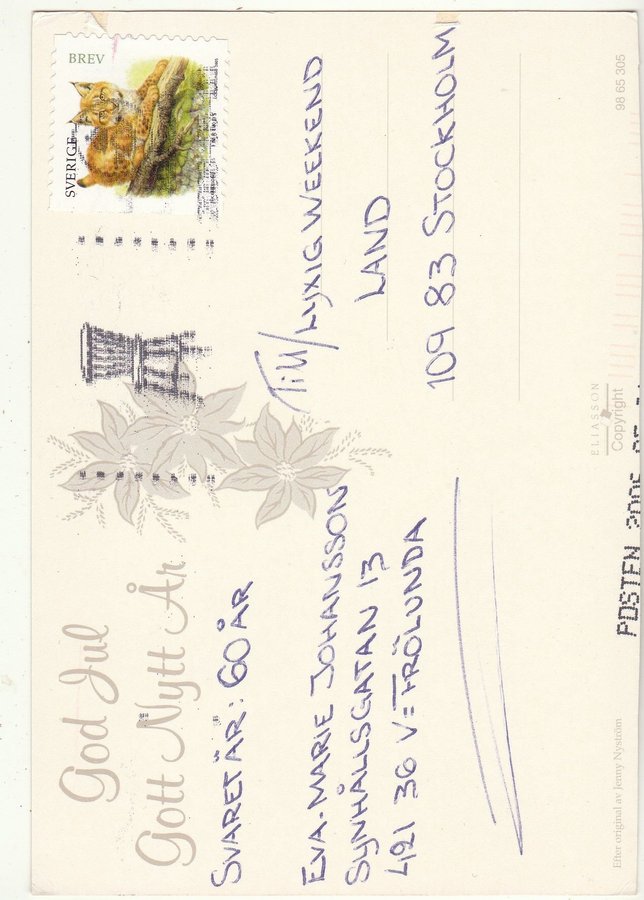 God Jul
Gott Nytt År
SVARET ÄR: 60 ÅR
EVA-MARIE JOHANSSON
SYNHÅLLSGATAN 13
421 36 V=FRÖLUNDA
BREV
SVERIGE
Till/LYXIG WEEKEND
LAND
109 83 STOCKHOLM
Efter original av Jenny Nyström
ELIASSON
Copyright
98 65 305
POSTEN